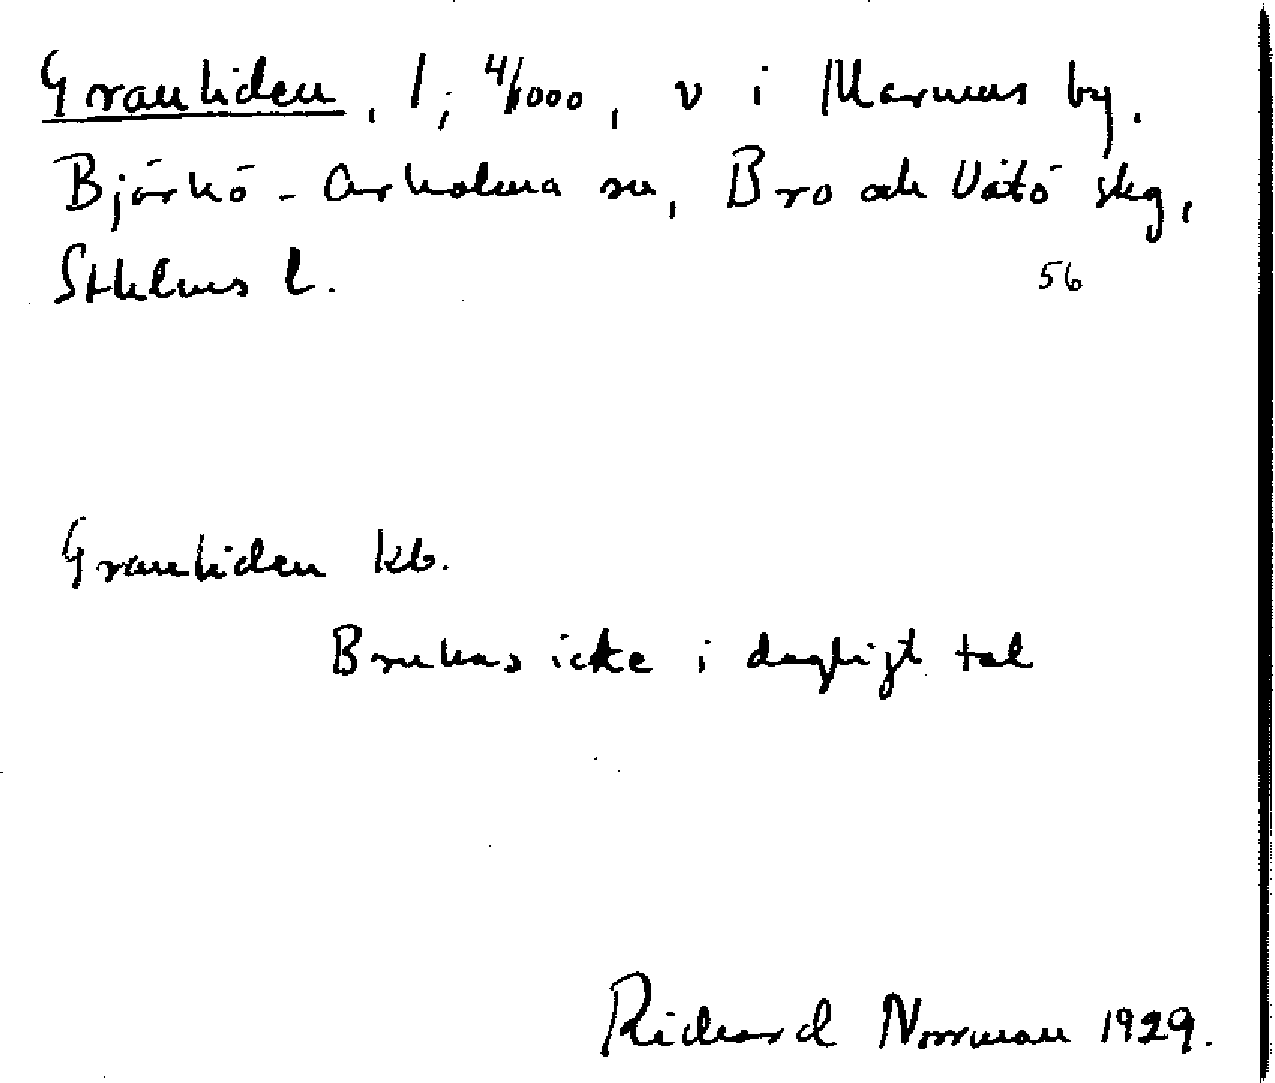 Granliden, l, 4/1000, v i Marums by.
Björkö-Arholma sn, Bro och Vätö skg,
Sthlms l. 56
Granliden kb.
Brukas icke i dagligt tal
Richard Norrman 1929.